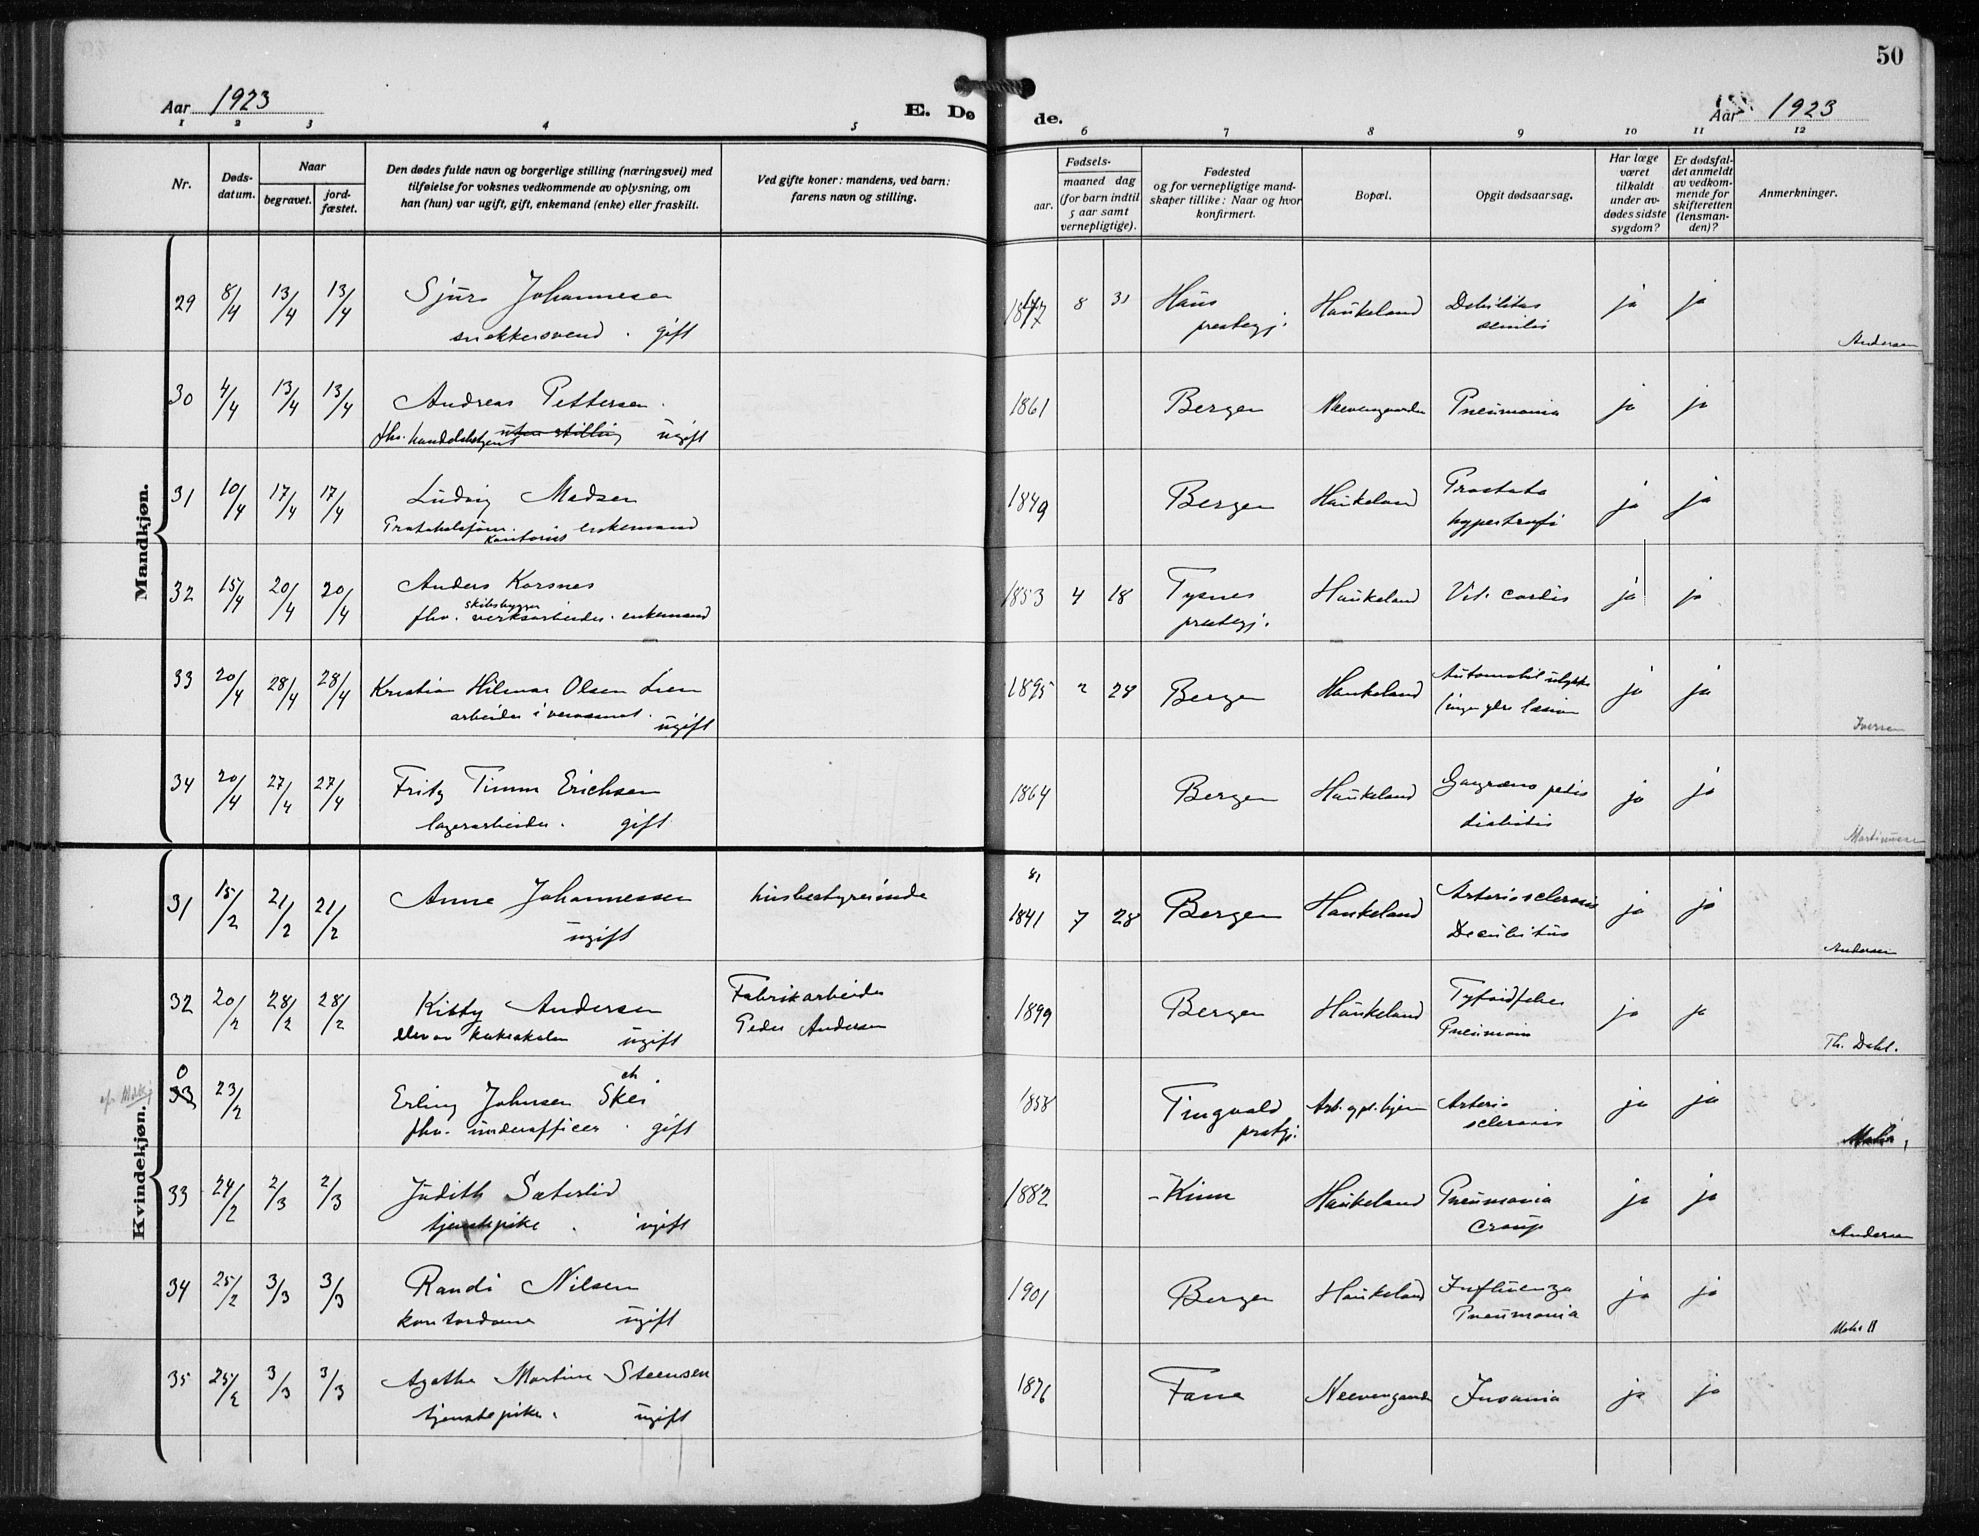 50
Aar 1923
E. Dø
de.
Aar 1923
1 2 3 4 5 6 7 8 9 10 11 12
Nr.
Døds-
datum.
Naar
begravet.
jord-
fæstet.
Den dødes fulde navn og borgerlige stilling (næringsvei) med
tilføielse for voksnes vedkommende av oplysning, om
han (hun) var ugift, gift, enkemand (enke) eller fraskilt.
Ved gifte koner: mandens, ved barn:
farens navn og stilling.
Fødsels-
aar.
maaned dag
(for barn indtil
5 aar samt
vernepligtige).
Fødested
og for vernepligtige mand-
skaper tillike: Naar og hvor
konfirmert.
Bopæl.
Opgit dødsaarsag.
Har læge
været
tilkaldt
under av-
dødes sidste
sygdom?
Er dødsfal-
det anmeldt
av vedkom-
mende for
skifteretten
(lensman-
den)?
Anmerkninger.
Mandkjøn.
29 8/4 13/4 13/4 Sjurs Johannesen 8 31 Haus Haukeland Debilitas ja ja
snekkersvend . gift prestegj. senilis
Andersen
30 4/4 13/4 13/4 Andreas Pettersen. 1861 Bergen Neevengaarden Pneumonia ja ja
fhv. handelsagent uten stilling ugift
31 10/4 17/4 17/4 Ludvig Madsen 1849 Bergen Haukeland Prostata ja ja
enkemand hypertrofi
32 15/4 20/4 20/4 Anders Korsnes 1853 4 18 Tysnes Haukeland Vit. cordis ja ja
skibsbygger
fhv. verksarbeider. enkemand prestegj.
33 20/4 28/4 28/4 Kristian Hilmar Olsen Lien 1895 2 24 Bergen Haukeland Automobil ulykke ja ja
arbeider i ugift
Iversen
34 20/4 27/4 27/4 Fritz Timm Erichsen 1864 Bergen Haukeland Gangræna pedis ja ja
lagerarbeider. gift diabetis
Martinussen
Kvindekjøn.
31 15/2 21/2 21/2 Anne Johannessen husbestyrerinde 1841 7 28 Bergen Haukeland Arteriosclerosis ja ja
ugift Decubitus
Andersen
32 20/2 28/2 28/2 Kitty Andersen Fabrikarbeider 1899 Bergen Haukeland Tyfoidfeber ja ja
ugift Peder Andersen Pneumoni
Th. Dahl.
0
33 23/2 Erling Johnsen Skei 1858 Tingvold Arterio ja ja
fhv. underofficer . gift prestgj. sclerosis
33 24/2 2/3 2/3 Judith Sæterlid 1882 - Kinn Haukeland Pneumonia ja ja
tjenestepike . ugift Croup
Andersen
34 25/2 3/3 3/3 Randi Nilsen 1901 Bergen Haukeland Influenza ja ja
kontordame ugift Pneumonia
35 25/2 3/3 3/3 Agathe Martine Steensen 1876 Fane Neevengaarden Insania ja ja
tjenstepike. ugift